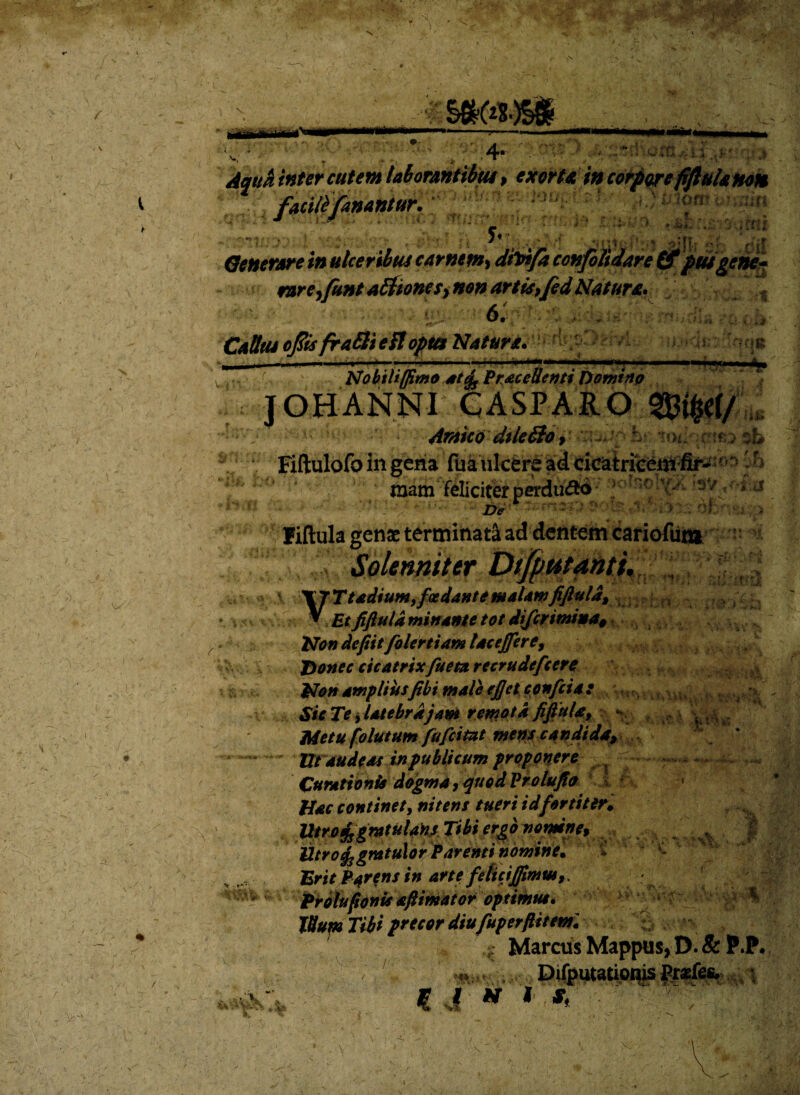 (28.)
4.
Aquâ inter cutem laborantibus, exorta in corpore fistula non
facilè sanantur.
5.
Generare in ulceribus carnem, divisa consolidare & pus gene-
rare, sunt actiones, non artis, sed Naturæ.
6.
Callus ossis fracti est opus Naturæ.
Nobilissimo atq̃ Præcellenti Domino
JOHANNI CASPARO Witzel/
Amico dilecto,
Fistuloso in gena sua ulcere ad cicatricem fir-
mam feliciter perducto
De
Fistula genæ terminatâ ad dentem cariosum
Solenniter Disputanti.
UT tædium, fœdante malam fistulâ,
Et fistulâ minante tot discrimina,
Non desiit solertiam lacessere,
Donec cicatrix sueta recrudescere
Non amplius sibi malè esset conscia:
Sic Te, latebrâ jam remotâ fistulæ,
Metu solutum suscitat mens candida,
Ut audeas in publicum proponere
Curationis dogma, quod Prolusio
Hæc continet, nitens tueri id fortiter.
Utroq̃ gratulans Tibi ergò nomine,
Utroq̃ gratulor Parenti nomine.
Erit Parens in arte felicissimus,
Prolusionis æstimator optimus.
Illum Tibi precor diu superstitem.
Marcus Mappus, D. & P.P.
Disputationis Præses.
FINIS.